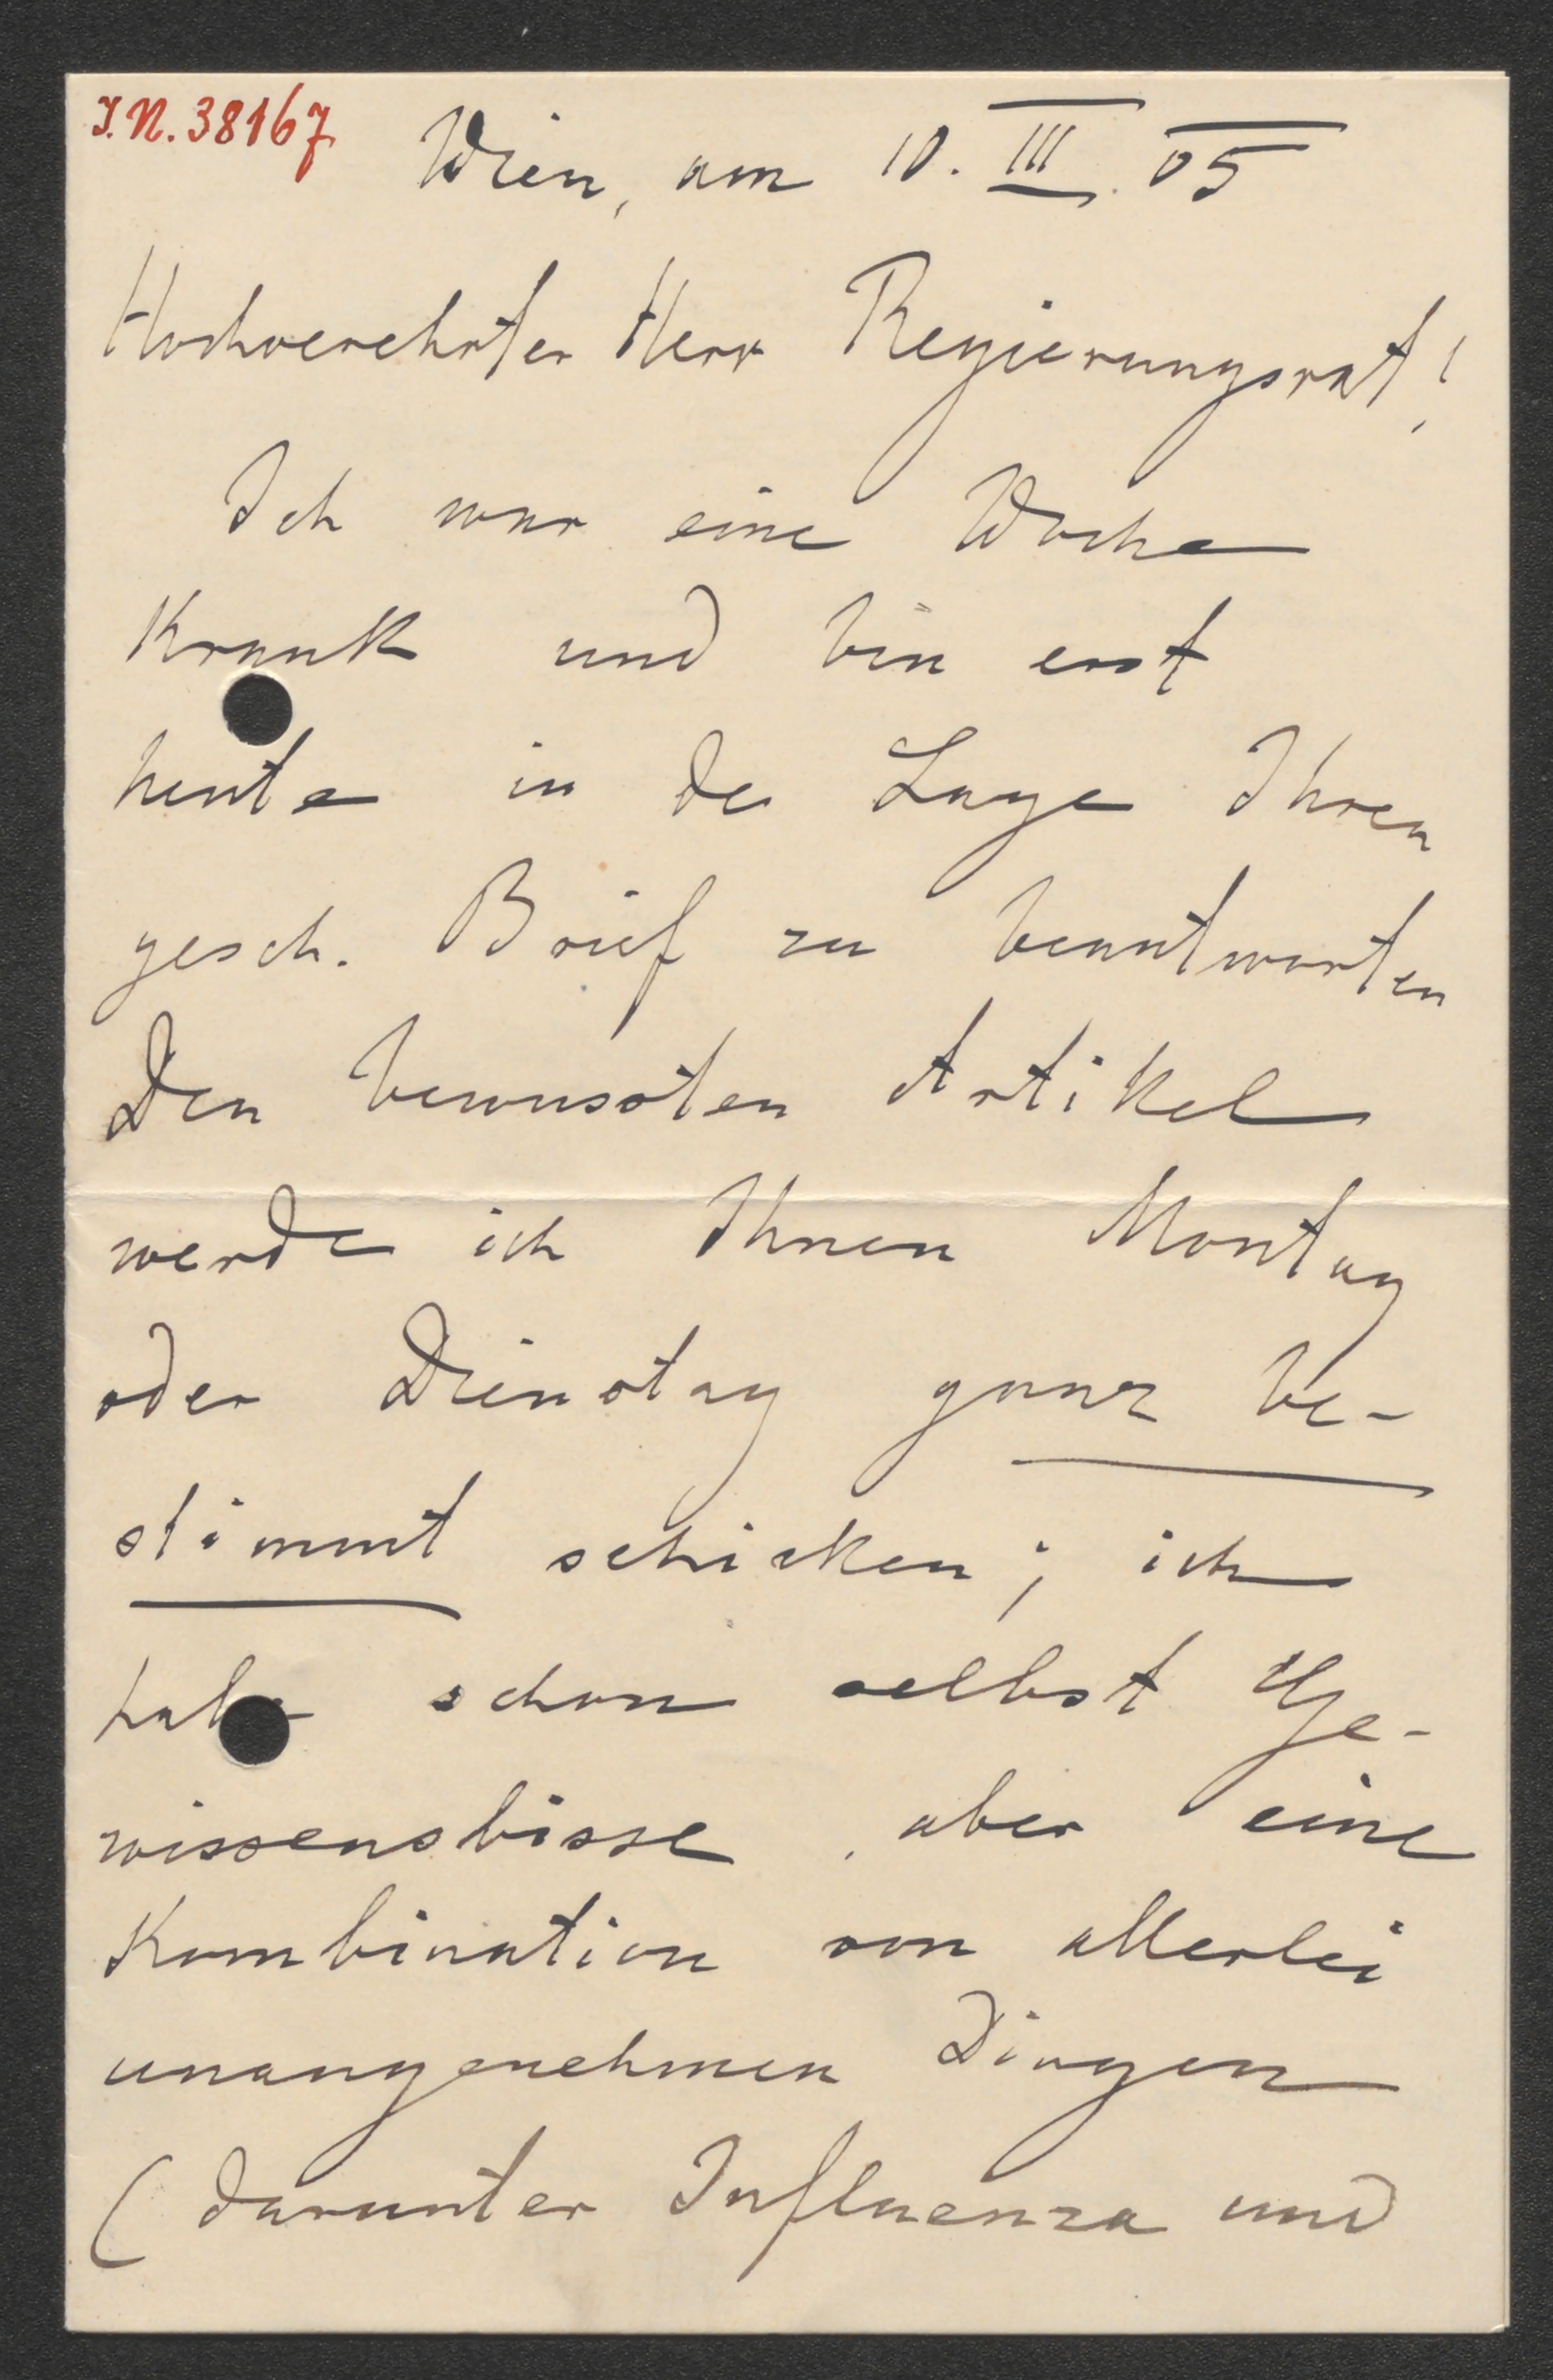 I.N. 38167
Wien, am 10. III. 05
Hochverehrter Herr Regierungsrat!
Ich war eine Woche
krank und bin erst
heute in der Lage Ihren
gesch. Brief zu beantworten
Den bewussten Artikel
werde ich Ihnen Montag
oder Dienstag ganz be-
stimmt schicken; ich
habe schon selbst Ge-
wissensbisse, aber eine
Kombination von allerlei
unangenehmen Dingen
(darunter Influenza und